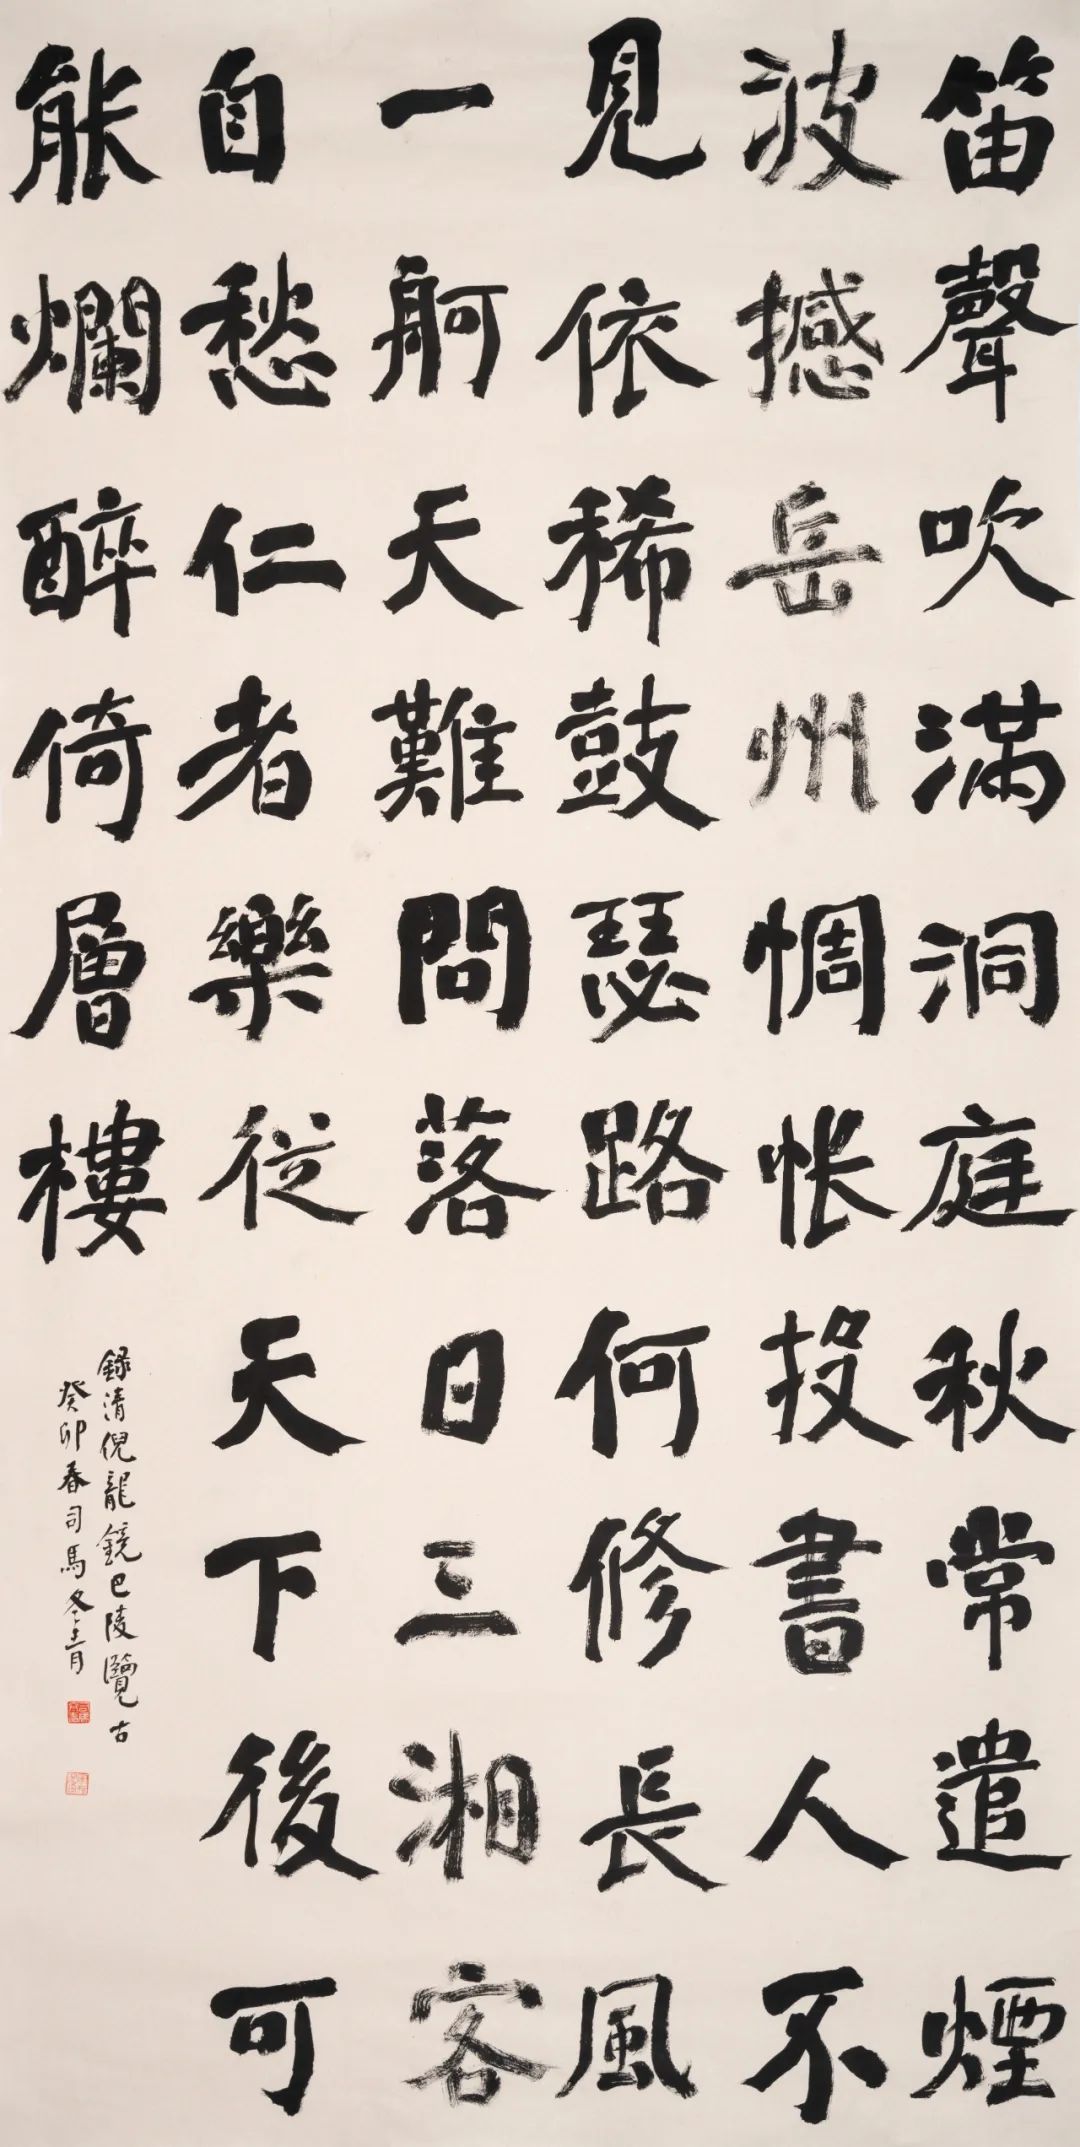 笛聲吹滿洞庭秋常遣煙
波撼岳州惆悵投書人不
見依稀鼓瑟路何修長風
一舸天難問落日三湘客
自愁仁者樂從天下後可
能爛醉倚層樓
録清倪龍鏡巴陵覽古
癸卯春司馬